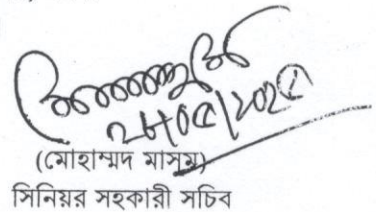 ২৮/০৫/২০২৫
(মোহাম্মদ মাসুম)
সিনিয়র সহকারী সচিব